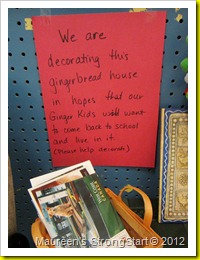 We are
decorating this
gingerbread house
in hopes that our
Ginger Kids will want
to come back to school
and live in it.
(Please help decorate)
Maureen's StrongStart © 2012